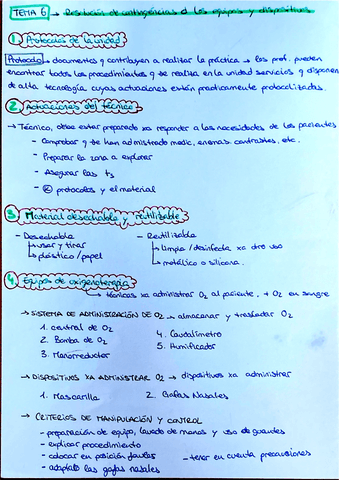 TEMA 6 → Resolución de contingencias d los equipos y dispositivos
1 Protocolos de la unidad
Protocolo → documentos q contribuyen a realizar la práctica → los prof. pueden
encontrar todos los procedimientos q se realiza en la unidad servicios q disponen
de alta tecnología cuyas actuaciones están practicamente protocolizadas.
2 Actuaciones del técnico
→ Técnico, debe estar preparado xa responder a las necesidades de los pacientes
- Comprobar q se han administrado medic, enemas, contrastes, etc.
- Preparar la zona a explorar
- Asegurar las ts
- protocolos y el material
3 Material desechable y reutilizable
- Desechable
↳ usar y tirar
↳ plástico/papel
- Reutilizable
↳ limpia/desinfecta xa otro uso
↳ metálico o silicona.
4 Equipos de oxigenoterapia
↳ técnicas xa administrar O2 al paciente, + O2 en sangre
→ SISTEMA DE ADMINISTRACIÓN DE O2 → almacenar y trasladar O2
1. central de O2
2. Bomba de O2
3. Manorreductor
4. Caudalímetro
5. Humificador
→ DISPOSITIVOS XA ADMINISTRAR O2 → dispositivos xa administrar
1. Mascarilla
2. Gafas Nasales
→ CRITERIOS DE MANIPULACIÓN y CONTROL
- preparación de equipo, lavado de manos y uso de guantes
- explicar procedimiento
- colocar en posición fowler
- adaptarle las gafas nasales
- tener en cuenta precauciones